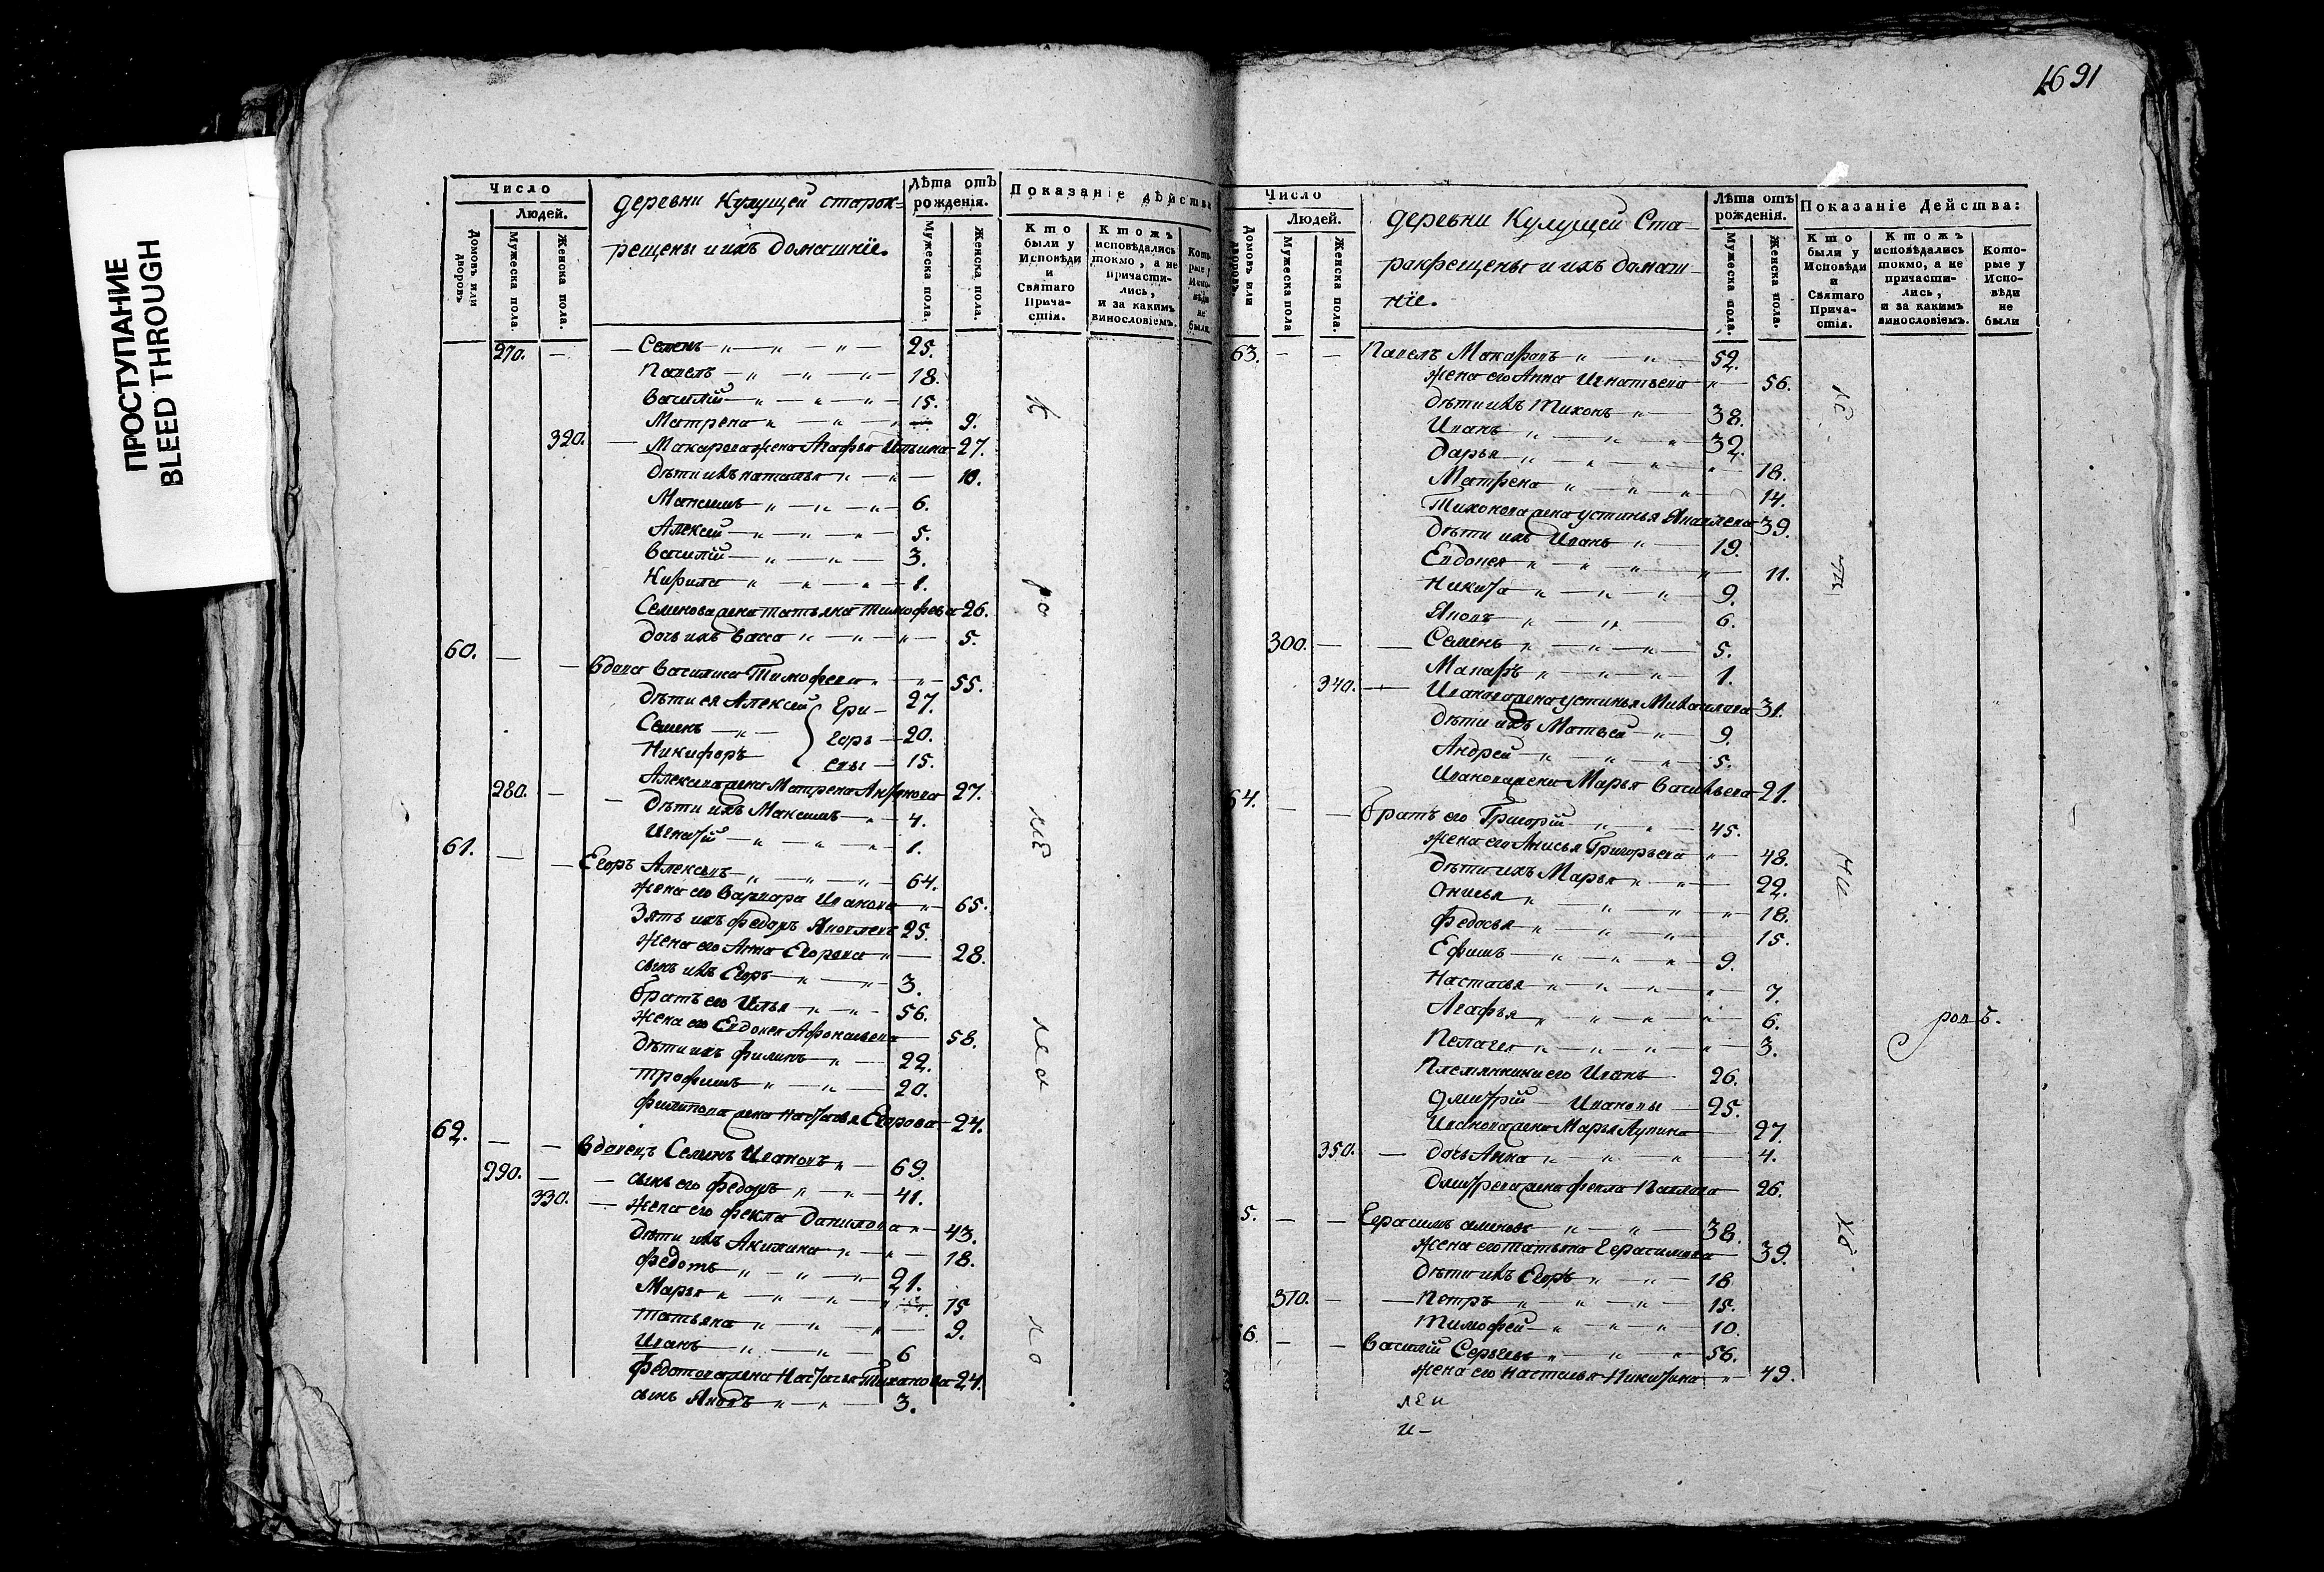 ПРОСТУПАНИЕ
BLEED THROUGH
1691
Число
Людей.
Домовъ или дворовъ
Мужеска пола.
Женска пола.
деревни Кулущей старок-
рещены и ихъ домашнїе.
Лѣта отъ рожденїя.
Мужеска пола.
Женска пола.
Показанїе дѣйства
Кто были у Исповѣди и Святаго Прича-стїя.
Ктожъ исповѣдались токмо, а не причасти-лись, и за какимъ винословїемъ.
Кото рые у Испо-вѣди не были
270. — — Семенъ 25.
Павелъ 18.
Василїй 15.
Матрена 9.
320. — Макарова жена Агафья Ильина 27.
Дѣти ихъ наталья 10.
Максимъ 6.
Алексѣй 5.
Василїй 3.
Кирила 1.
Семенова жена татьяна тимофева 26.
дочь ихъ Васса 5.
60. — — Вдова Василиса Тимофеева 55.
Дѣти ея Алексей Гри- 27.
Семенъ горь- 20.
Никифоръ евы 15.
Алексѣева жена Матрена 27.
280. — — Дѣти ихъ Максимъ 4.
Игнатїй 1.
61. — — Егоръ Алексѣевъ 64.
жена его Варвара Иванова 65.
Зять ихъ федоръ Яковлевъ 25.
жена его Анна Егорева 28.
сынъ ихъ Егоръ 3.
братъ его Илья 56.
жена его Евдокея Афонасьева 58.
Дѣти ихъ филипъ 22.
трофимъ 20.
филипова жена настасья Егорова 24.
62. — — Вдовецъ Семенъ Ивановъ 69.
290. — — сынъ его федоръ 41.
330. — жена его фекла Данилова 43.
Дѣти ихъ Акилина 18.
федотъ 21.
Марья 15
татьяна 9.
Иванъ 6
Федотова жена Настасья Тиханова 24.
сынъ Яковъ 3.
Число
Людей.
Домовъ или дворовъ.
Мужеска пола
Женска пола.
деревни Кулущей Ста-
рокрещены и ихъ домаш-
нїе.
Лѣта отъ рожденїя.
Мужеска пола.
Женска пола.
Показанїе Действа:
Кто были у Исповѣди и Святаго Прича-стїя.
Ктожъ исповѣдались токмо, а не причасти-лись, и за какимъ винословїемъ.
Кото-рые у Испо-вѣди не были
63. — — Павелъ Макаровъ 52.
жена его Анна Игнатьева 56.
Дѣти ихъ Тихонъ 38.
Иванъ 32.
Дарья 18.
Матрена 14.
Тихонова жена устинья Яковлева 39.
Дѣти ихъ Иванъ 19.
Евдокея 11.
Никита 9.
Яковъ 6.
300. — — Семенъ 5.
Макаръ 1.
340. — Иванова жена устинья Михайлова 31.
Дѣти ихъ Матвей 9.
Андрей 5.
Иванова жена Марья Васильева 21.
64. — — братъ его Григорїй 45.
жена его Анисья Григорьева 48.
Дѣти ихъ Марья 22.
Онисья 18.
федосья 15.
Ефимъ 9.
Настасья 7.
Агафья 6.
Пелагея 3.
Племянники его Иванъ 26.
Дмитрїй Ивановы 25.
Иванова жена Марья Лупина 27.
350. — дочь Анна 4.
Дмитрева жена фекла Павлова 26.
5. — — Герасимъ 38.
жена его татьяна Герасимова 39.
Дѣти ихъ Егоръ 18
310. — — Петръ 15.
Тимофей 10.
6. — — Василїй Сергѣевъ 56.
жена его настасья Никитина 49.